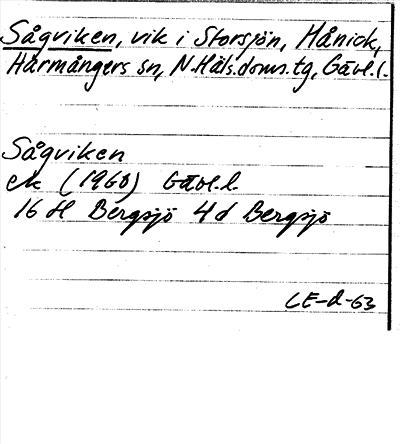 Sågviken, vik i Storsjön, Hånick,
Harmångers sn, N.Häls.doms.tg, Gävl.l.
Sågviken
ek (1968) Gävl.l.
16 H Bergsjö 4 d Bergsjö
LE-d-63